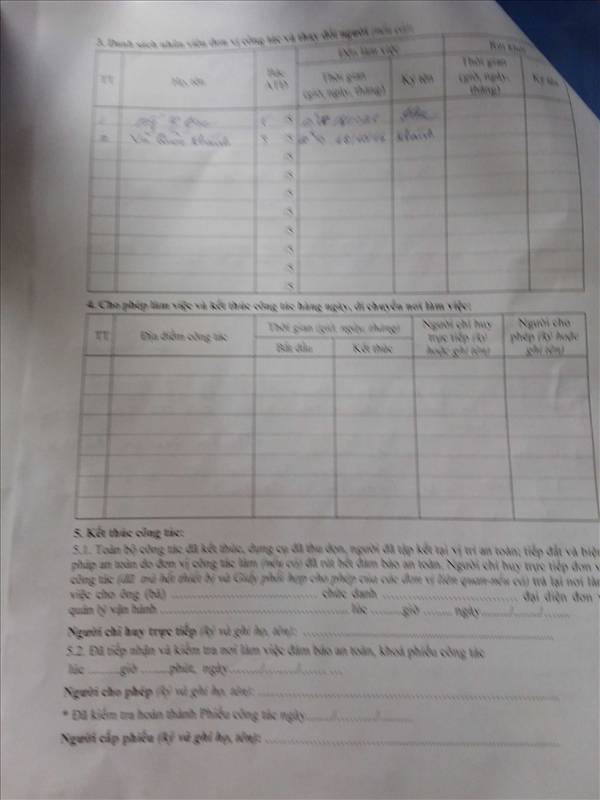 3. Danh sách nhân viên đơn vị công tác và thay đổi người (nếu có):
TT
Họ, tên
Bậc ATĐ
Đến làm việc
Thời gian (giờ, ngày, tháng)
Ký tên
Rút khỏi
Thời gian (giờ, ngày, tháng)
Ký tên
5
5
Khánh
5
5
5
5
5
5
5
5
4. Cho phép làm việc và kết thúc công tác hàng ngày, di chuyển nơi làm việc:
TT
Địa điểm công tác
Thời gian (giờ, ngày, tháng)
Bắt đầu
Kết thúc
Người chỉ huy trực tiếp (ký hoặc ghi tên)
Người cho phép (ký hoặc ghi tên)
5. Kết thúc công tác:
5.1. Toàn bộ công tác đã kết thúc, dụng cụ đã thu dọn, người đã tập kết tại vị trí an toàn; tiếp đất và biện
pháp an toàn do đơn vị công tác làm (nếu có) đã rút hết đảm bảo an toàn. Người chỉ huy trực tiếp đơn v
công tác (đã trả hết thiết bị và Giấy phối hợp cho phép của các đơn vị liên quan-nếu có) trả lại nơi làm
việc cho ông (bà) .......... chức danh .......... đại diện đơn
quản lý vận hành .......... lúc ......giờ ...... ngày....../....../......
Người chỉ huy trực tiếp (ký và ghi họ, tên): ..........
5.2. Đã tiếp nhận và kiểm tra nơi làm việc đảm bảo an toàn, khoá phiếu công tác
lúc ........giờ .......phút, ngày......./......./.......
Người cho phép (ký và ghi họ, tên): ..........
* Đã kiểm tra hoàn thành Phiếu công tác ngày......./......./.......
Người cấp phiếu (ký và ghi họ, tên): ..........